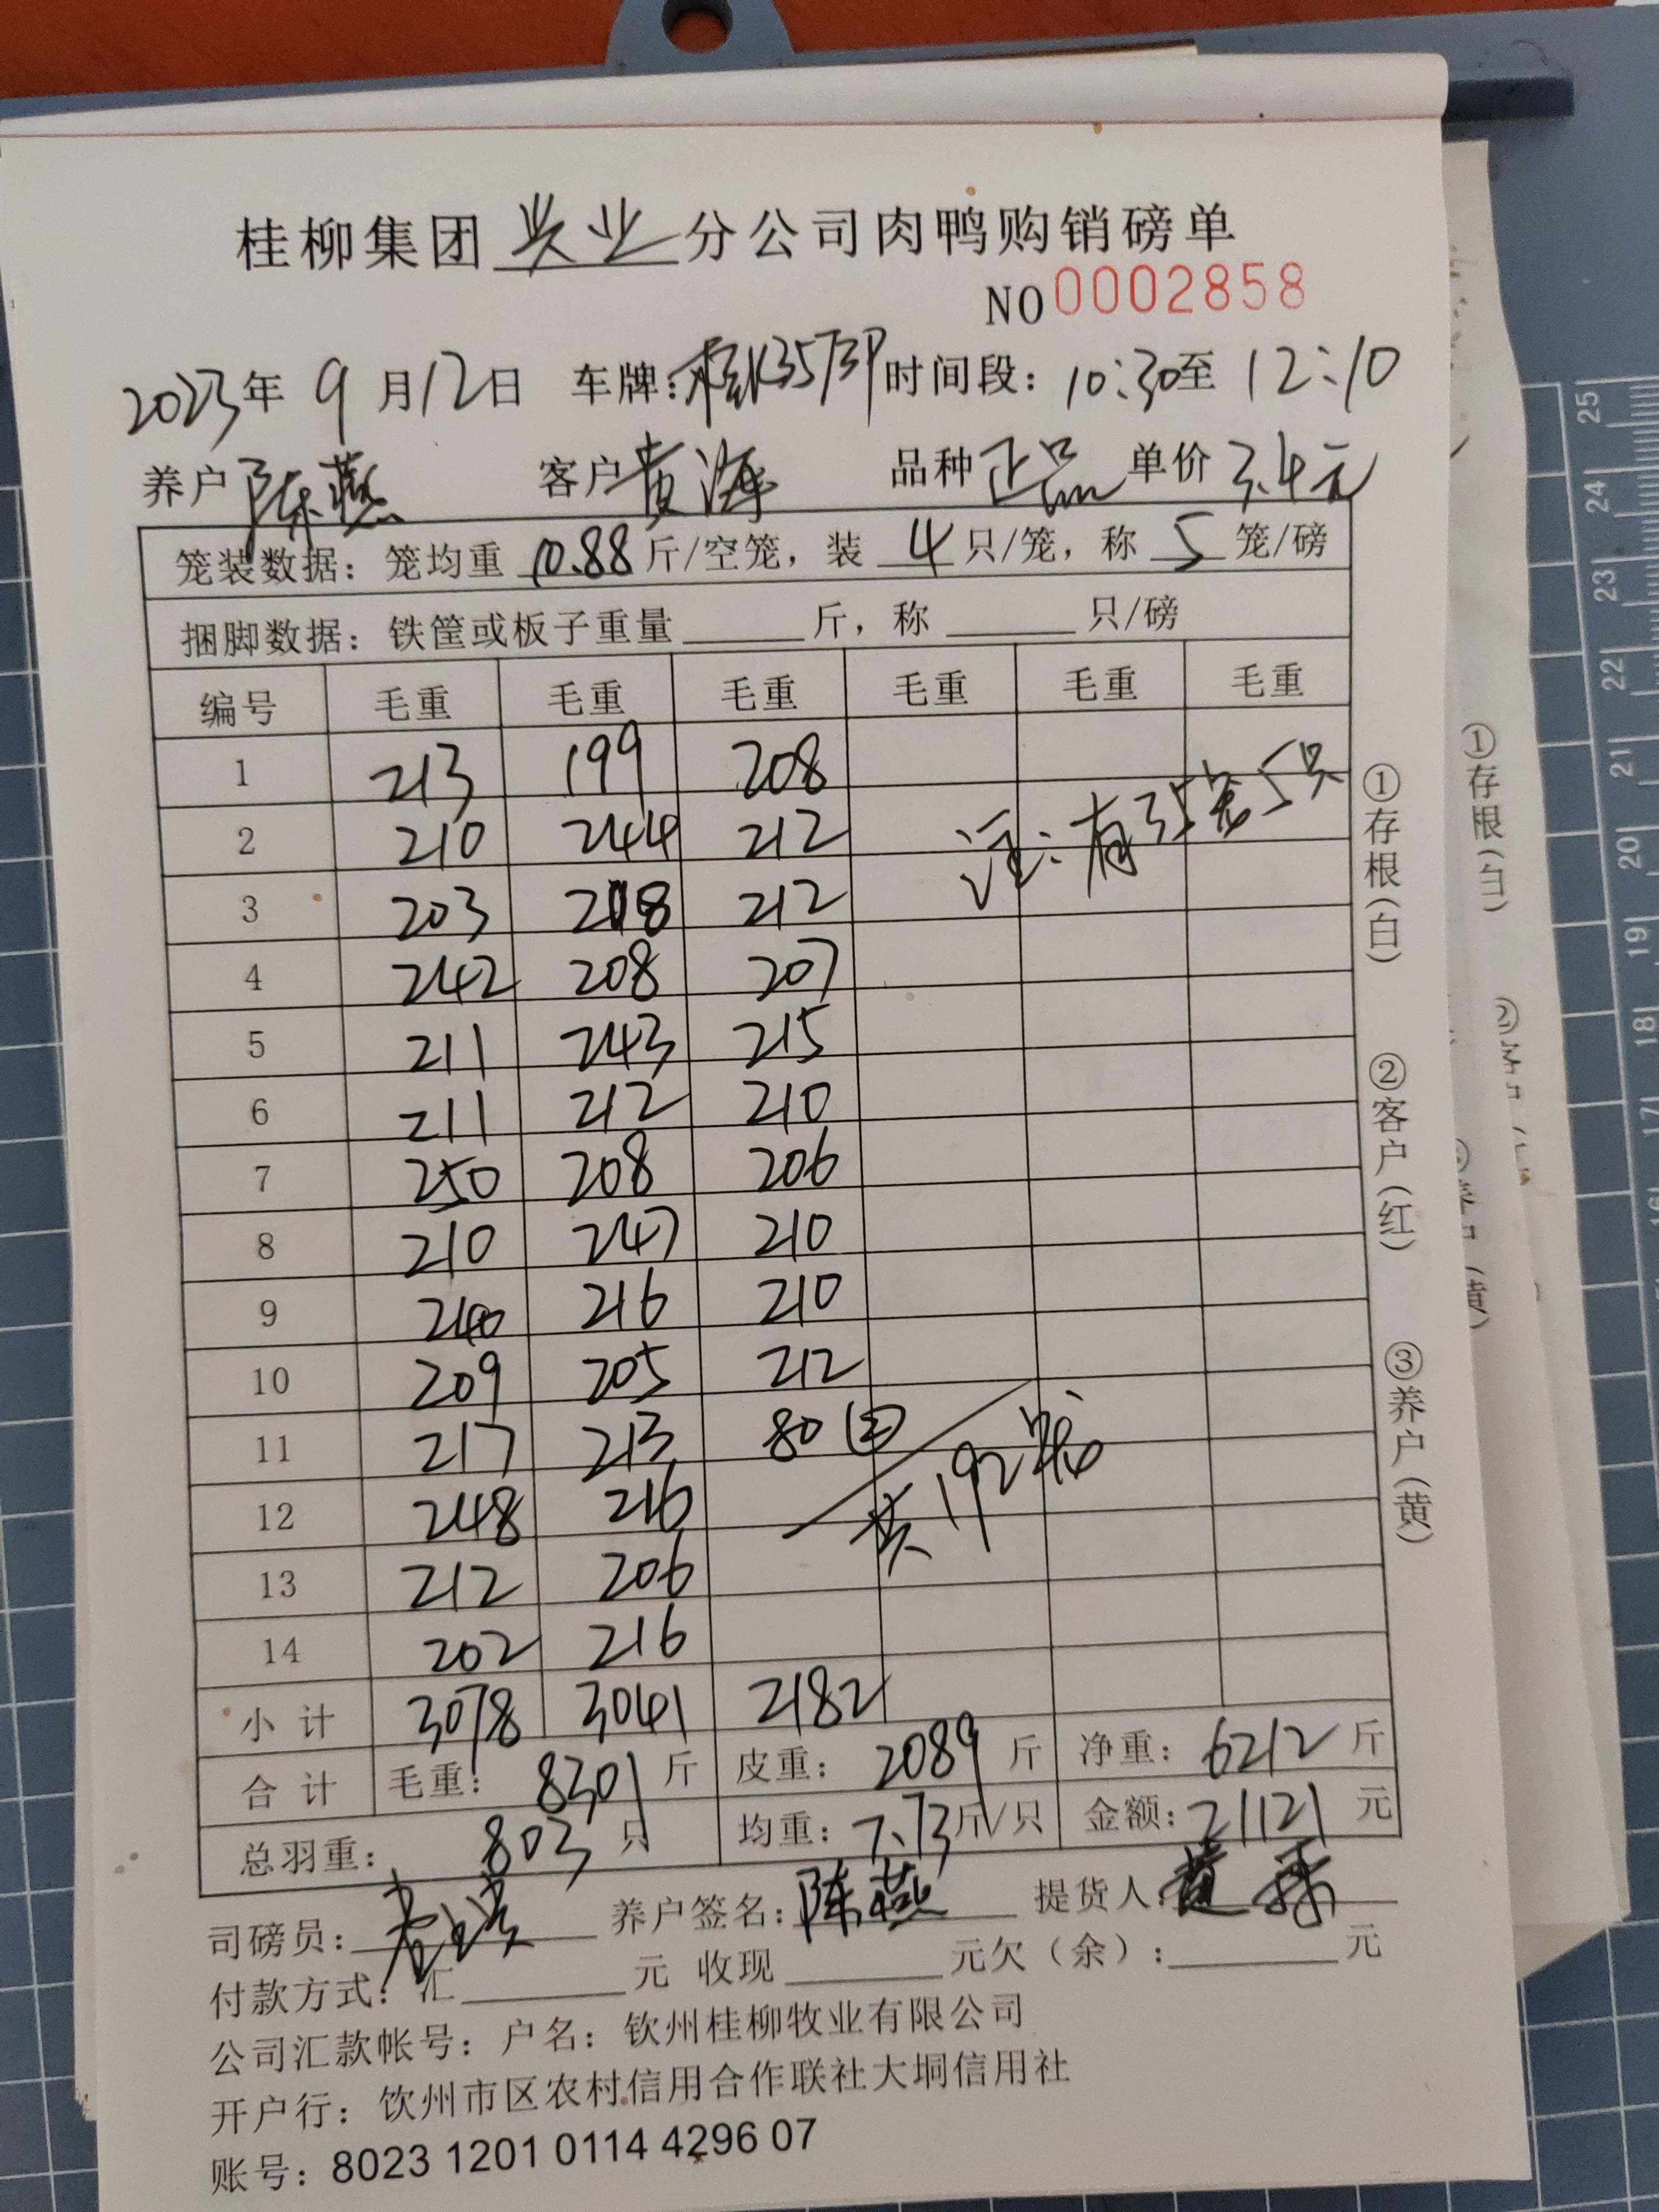 桂柳集团 兴业 分公司肉鸭购销磅单
NO 0002858
2023年 9月12日 车牌:桂K3573P 时间段:10:30至 12:10
养户 陈燕 客户 黄海 品种 正品 单价 3.4元
笼装数据:笼均重 10.88 斤/空笼,装 4 只/笼,称 5 笼/磅
捆脚数据:铁筐或板子重量______斤,称______只/磅
编号 毛重 毛重 毛重 毛重 毛重 毛重
1 213 199 208
注:有35笼5只
2 210 244 212
3 203 218 212
4 242 208 207
5 211 243 215
6 211 212 210
7 250 208 206
8 210 247 210
9 240 216 210
10 209 205 212
11 217 213 80(2)
共192笼
12 248 216
13 212 206
14 202 216
小计 3078 3041 2182
合计 毛重:8301斤 皮重:2089斤 净重:6212斤
总羽重:803只 均重:7.73斤/只 金额:21121元
司磅员: 养户签名:陈燕 提货人:
付款方式:汇______元 收现______元欠(余):______元
公司汇款帐号:户名:钦州桂柳牧业有限公司
开户行:钦州市区农村信用合作联社大垌信用社
账号:8023 1201 0114 4296 07
①存根(白)
②客户(红)
③养户(黄)
①存根(白)
25
24
23
22
21
20
19
18
17
16